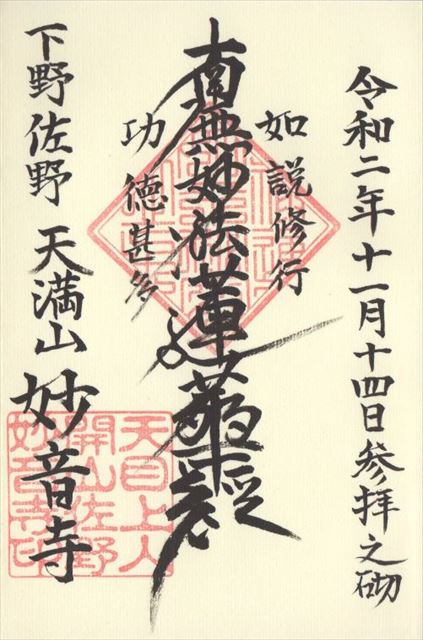 令和二年十一月十四日参拝之砌
如説修行
南無妙法蓮華經
功徳甚多
下野佐野 天満山 妙音寺
天目上人
開山佐野
妙音寺印